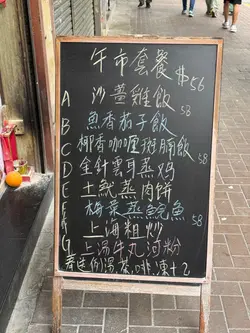 午市套餐 $56
A 沙薑雞飯
B 魚香茄子飯 58
C 椰香咖喱斑腩飯 58
D 金針雲耳蒸鸡
E 土魷蒸肉饼
F 梅菜蒸鲩魚 58
上海粗炒
G 上湯牛丸河粉
送例湯 茶 啡 凍+2